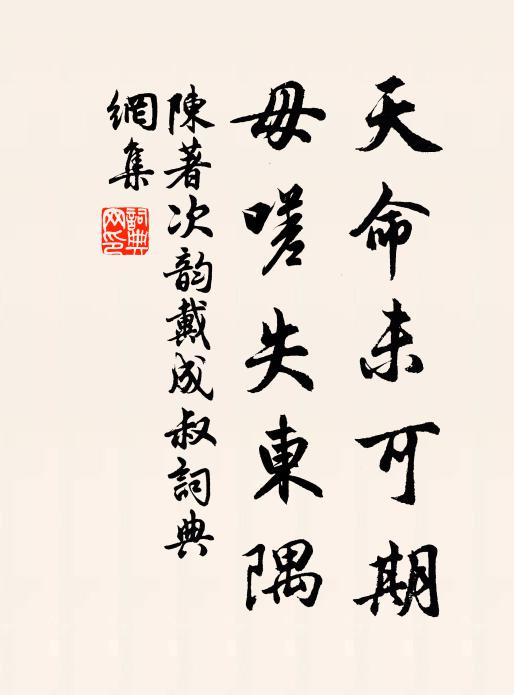 天命未可期
毋嗟失東隅
陳著次韵戴成叔詞典
網集
詞典
网印